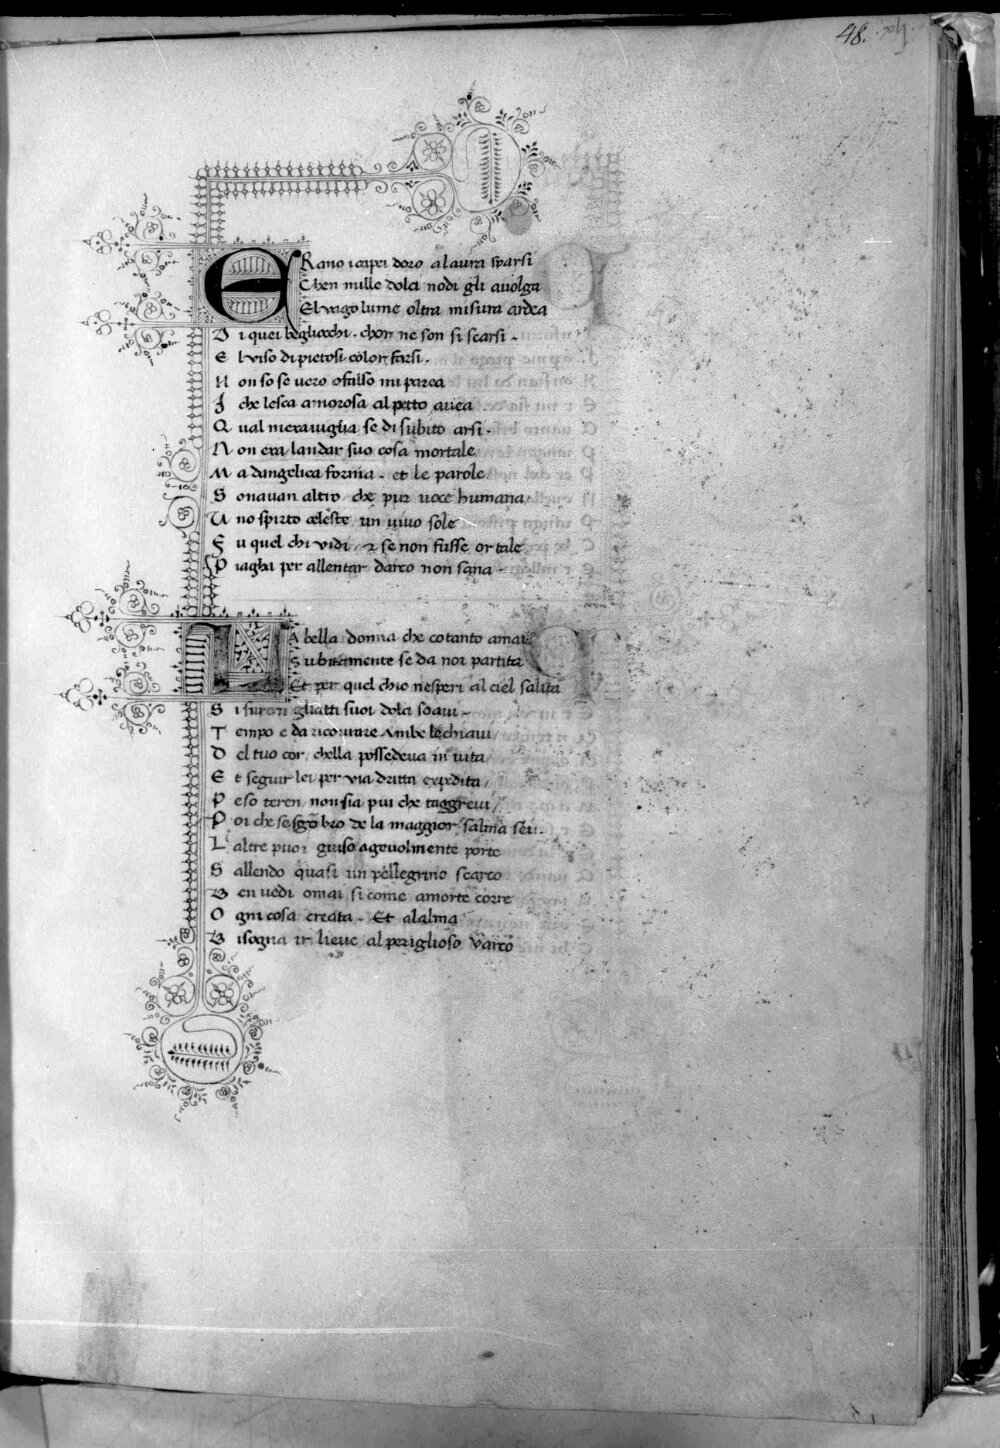 48.
ERano i capei doro a laura sparsi
Chen mille dolci nodi gli auolga
El uago lume oltra misura ardea
Di quei begliocchi. chor ne son si scarsi.
El uiso di pietosi color farsi.
Non so se uero o falso mi parea
I che lesca amorosa al petto auea
Qual merauiglia se di subito arsi.
Non era landar suo cosa mortale
Ma dangelica forma. et le parole
Sonauan altro che pur uoce humana/
Uno spirto celeste un uiuo sole
Fu quel chi vidi / & se non fusse or tale
Piagha per allentar darco non sana.
LA bella donna che cotanto amaui
Subitamente se da noi partita
Et per quel chio nesperi al ciel salita
Si furon gliatti suoi dolci soaui.
Tempo e da ricourare Ambe le chiaui/
Del tuo cor/ chella possedeua in uita/
Et seguir lei per via dritta expedita/
Peso teren/ non sia piu che taggreui/
Poi che se sgōbro de la maggior salma sei.
Laltre puoi giuso ageuolmente porre
Sallendo quasi un pellegrino scarco
Ben uedi omai si come amorte corre
Ogni cosa creata. Et alalma
Bisogna ir lieue al periglioso varco